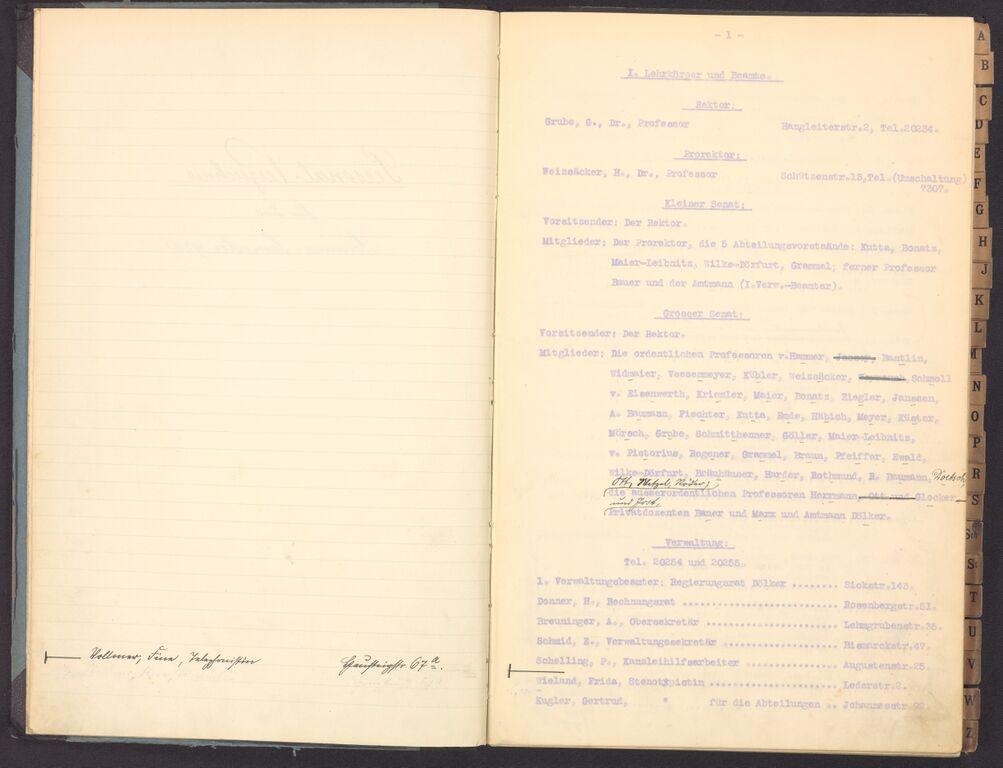 Vollmer, Fine, Telephonistin Hausteigstr. 67 a.
- 1 -
I. Lehrkörper und Beamte.
Rektor:
Grube, G., Dr., Professor Hangleiterstr.2, Tel.20234.
Prorektor:
Weizsäcker, H., Dr., Professor Schützenstr.13,Tel.(Umschaltung)
7307.
Kleiner Senat:
Vorsitzender: Der Rektor.
Mitglieder: Der Prorektor, die 5 Abteilungsvorstände: Kutta, Bonatz,
Maier-Leibnitz, Wilke-Dörfurt, Grammel; ferner Professor
Bauer und der Amtmann (I.Verw.-Beamter).
Grosser Senat:
Vorsitzender: Der Rektor.
Mitglieder: Die ordentlichen Professoren v.Hammer, Bantlin,
Widmaier, Veesenmeyer, Kübler, Weizsäcker, Schmoll
v. Eisenwerth, Kriemler, Maier, Bonatz, Ziegler, Janssen,
A. Baumann, Fiechter, Kutta, Emde, Häbich, Meyer, Küster,
Mörsch, Grube, Schmitthenner, Göller, Maier-Leibnitz,
v. Pistorius, Regener, Grammel, Braun, Pfeiffer, Ewald,
Wilke-Dörfurt, Bräuhäuser, Harder, Rothmund, R. Baumann, Doetsch,
Ott, Wetzel, Röder;
die ausserordentlichen Professoren Herrmann, Ott und Glocker
und Prot.
Privatdozenten Bauer und Marx und Amtmann Dölker.
Verwaltung:
Tel. 20254 und 20255.
1. Verwaltungsbeamter: Regierungsrat Dölker ........ Sickstr.143.
Donner, H., Rechnungsrat ........................... Rosenbergstr.51.
Breuninger, A., Obersekretär ....................... Lehmgrubenstr.35.
Schmid, E., Verwaltungssekretär .................... Bismarckstr.47.
Schelling, P., Kanzleihilfsarbeiter ................ Augustenstr.25.
Wieland, Frida, Stenotypistin ...................... Lederstr.2.
Kugler, Gertrud, " für die Abteilungen .. Johannesstr.92.
A
B
C
D
E
F
G
H
J
K
L
M
N
O
P
R
S
Sch
St
T
U
V
W
Z